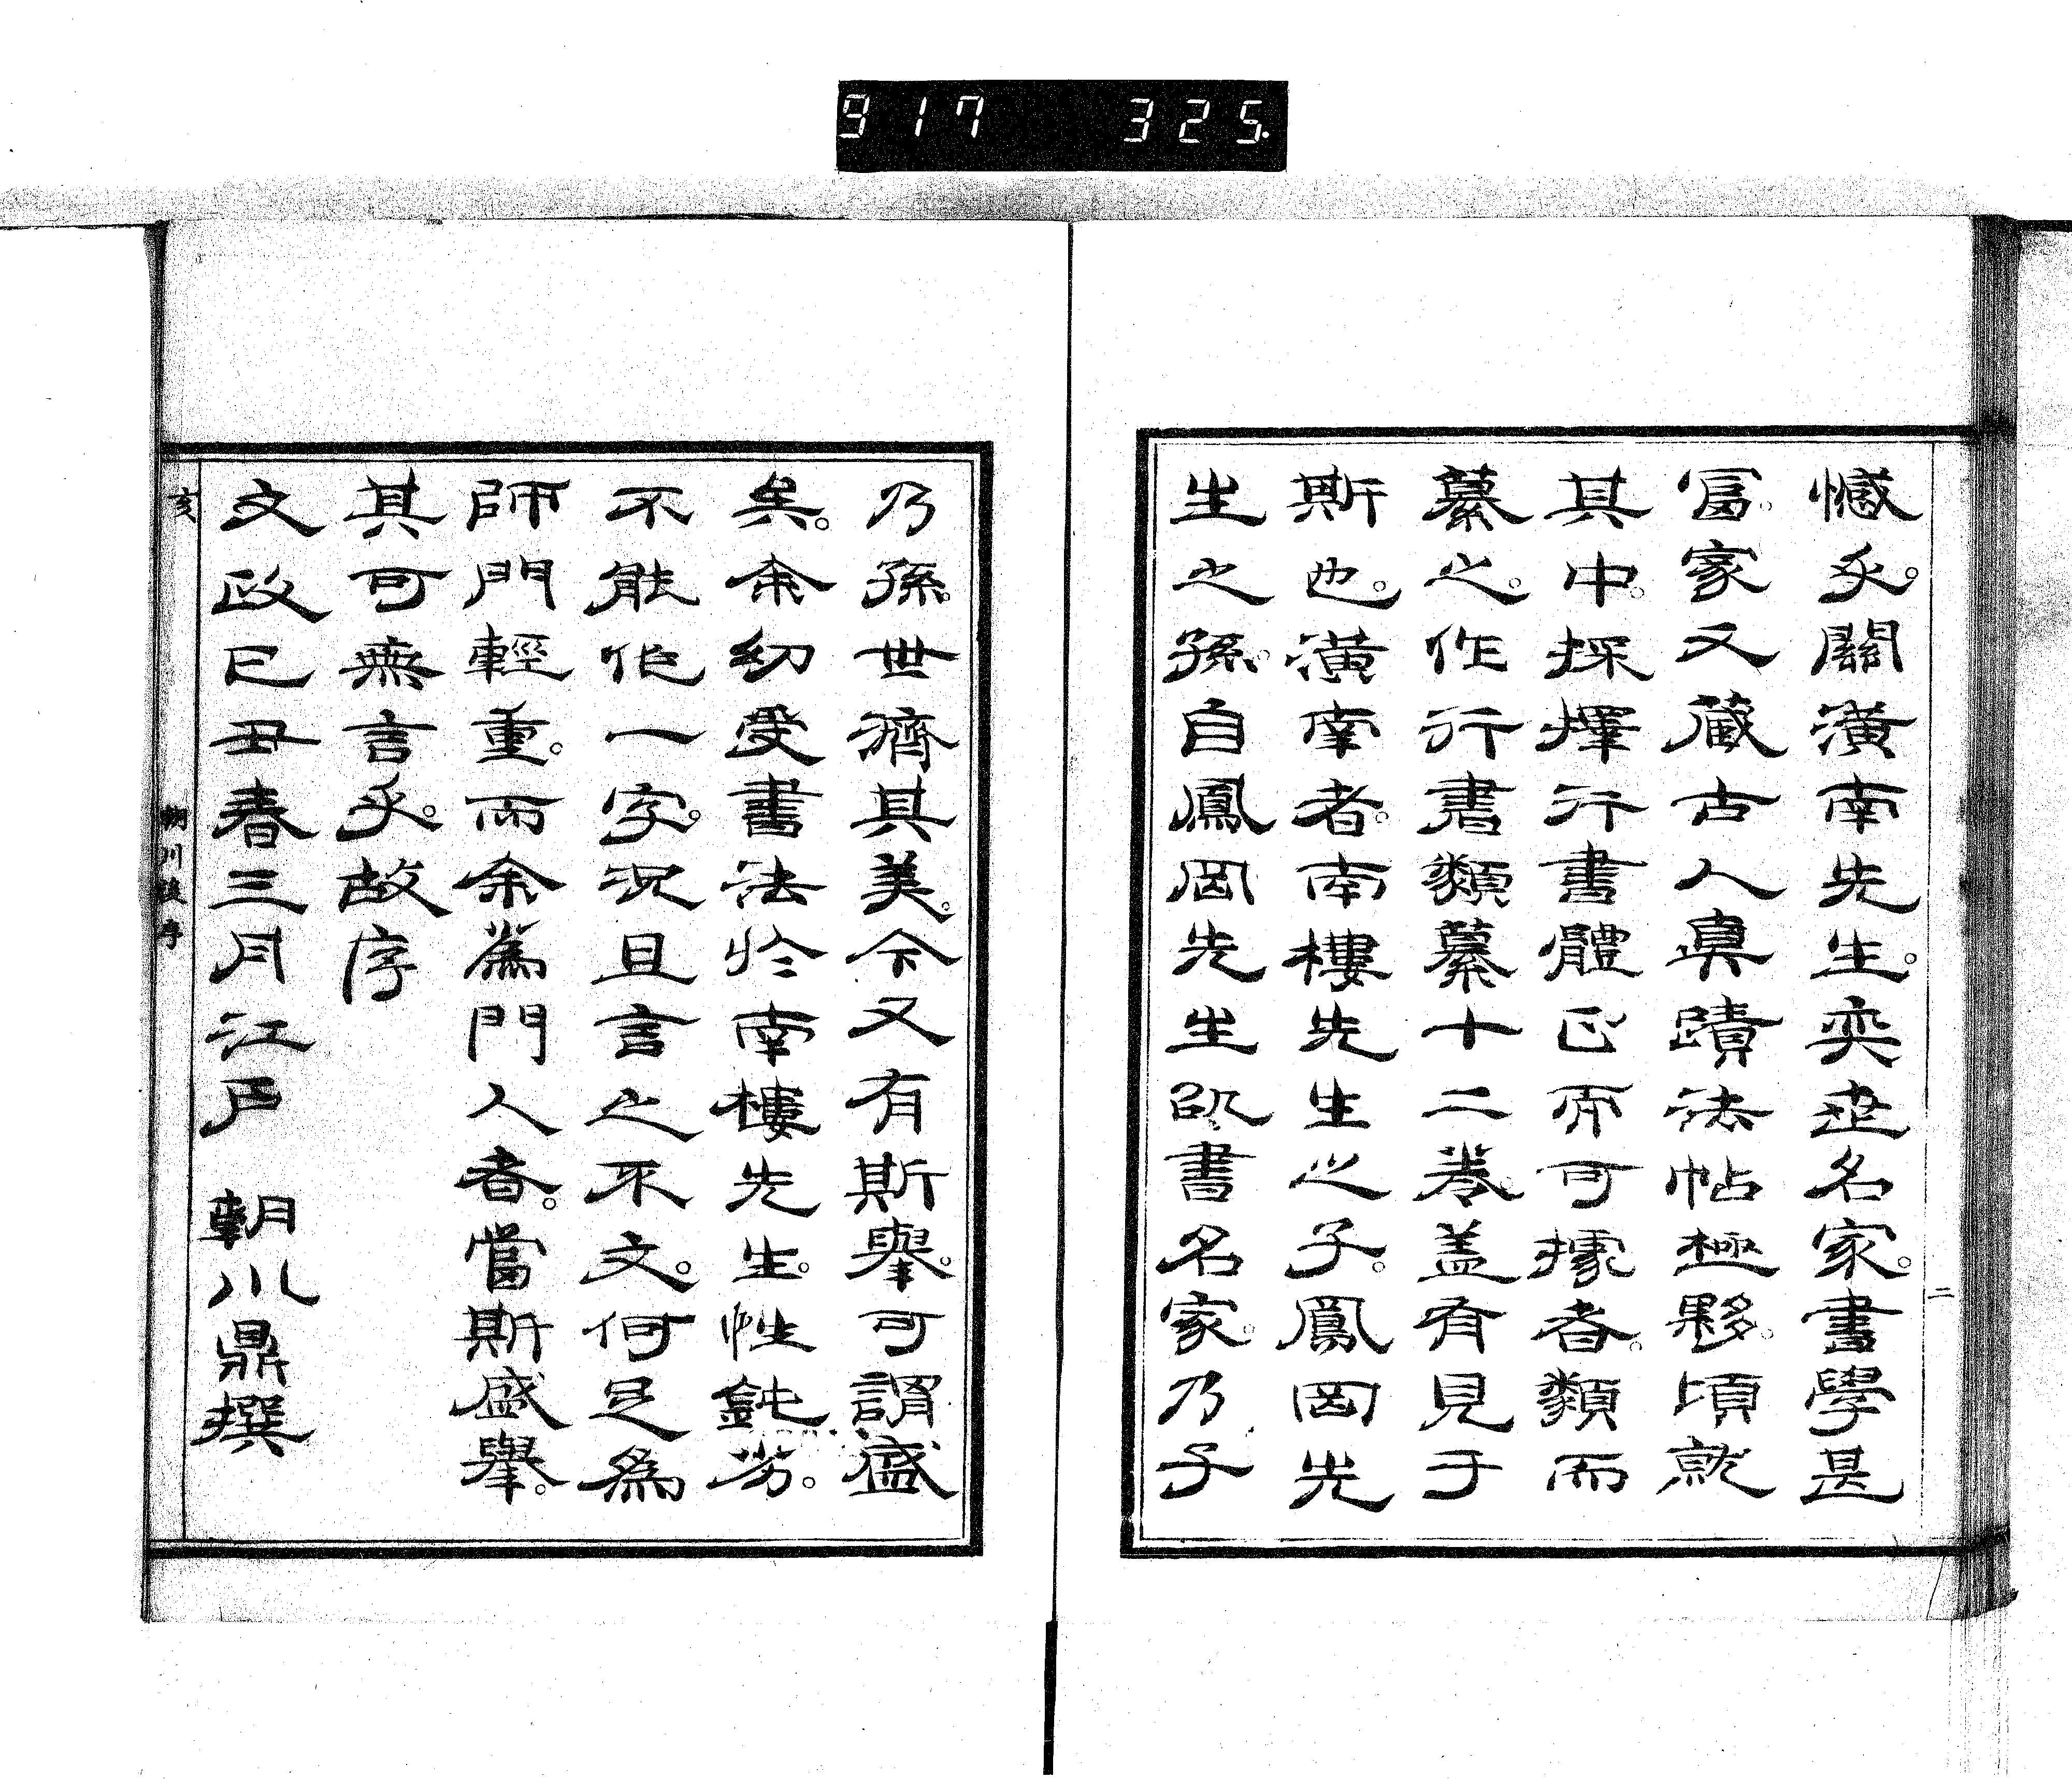 917 325
二
憾乎。關潢南先生。奕世名家。書學甚
冨。家又藏古人真蹟法帖極夥。頃就
其中。採擇行書體正而可據者。類而
纂之。作行書類纂十二卷。蓋有見于
斯也。潢南者。南樓先生之子。鳳岡先
生之孫。自鳳岡先生以書名家。乃子
乃孫。世濟其美。今又有斯舉。可謂盛
矣。余幼受書法於南樓先生。性鈍劣。
不能作一字。況且言之不文。何足為
師門輕重。而余為門人者。當斯盛舉。
其可無言乎。故序
文政己丑春三月江戶 朝川鼎撰
亥 朝川氏序